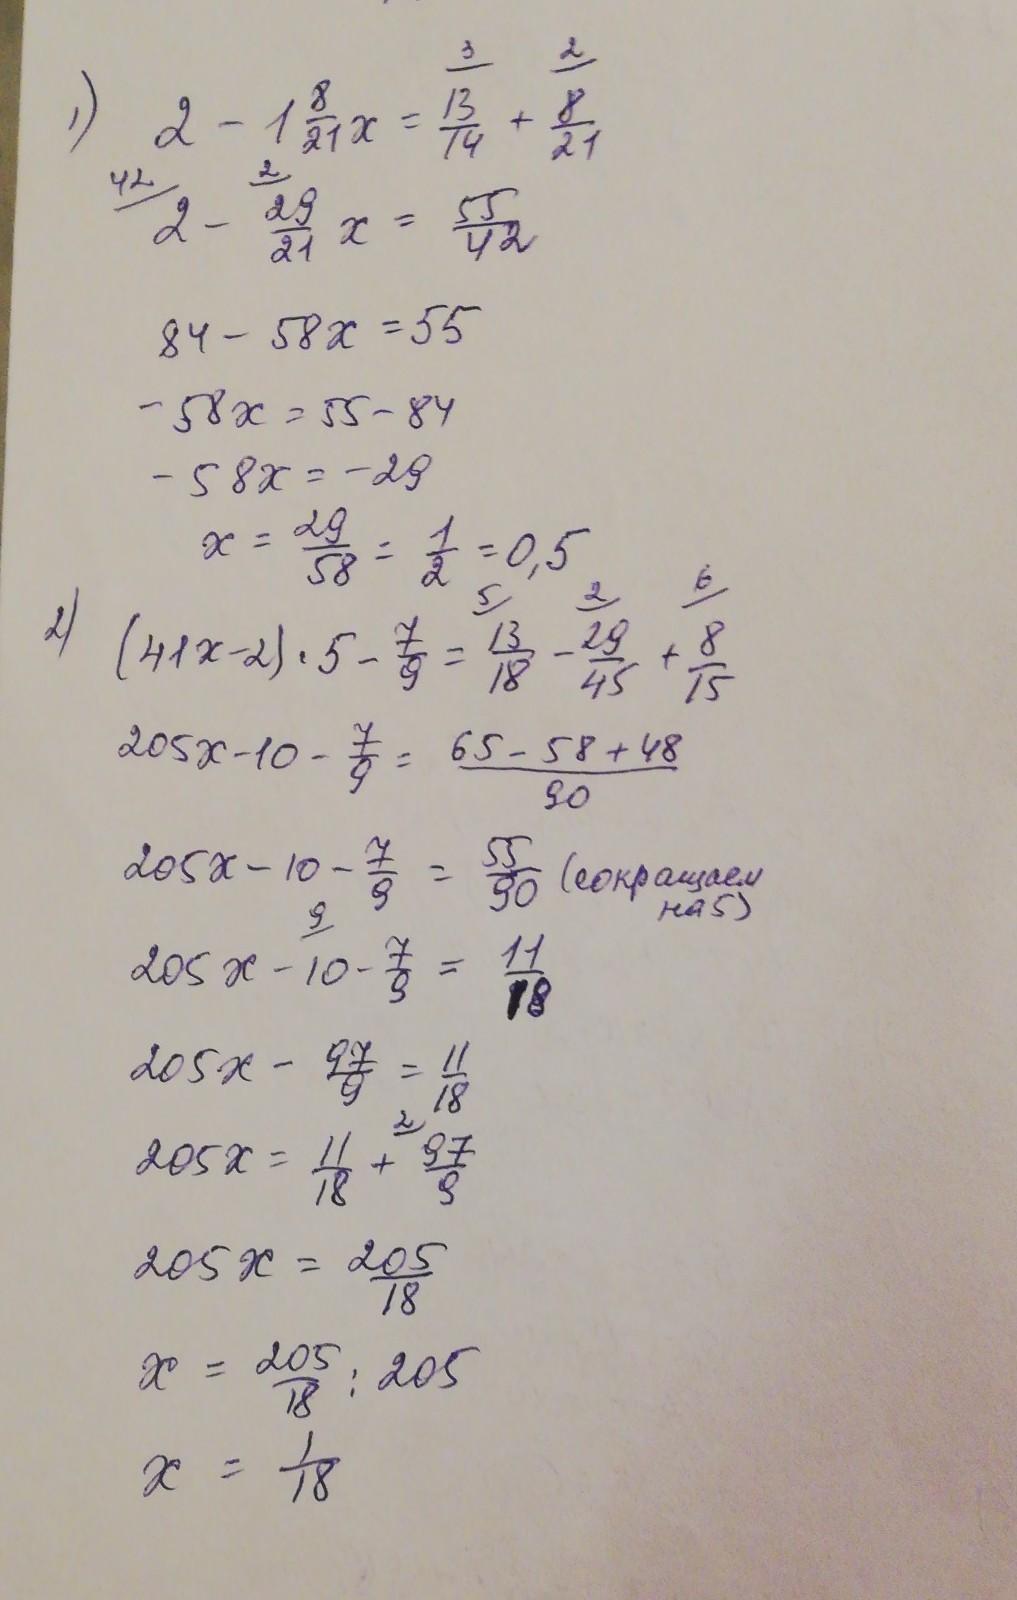 1) 2 - 1 8/21 x = 13/14 (3 + 8/21 (2
42/ 2 - 29/21 (2 x = 55/42
84 - 58x = 55
-58x = 55 - 84
-58x = -29
x = 29/58 = 1/2 = 0,5
2) (41x-2)·5 - 7/9 = 13/18 (5 - 29/45 (2 + 8/15 (6
205x-10 - 7/9 = 65-58+48/90
205x-10-7/9 = 55/90 (сокращаем
на 5)
205x - 10 (9 - 7/9 = 11/18
205x - 97/9 = 11/18
205x = 11/18 + 97/9 (2
205x = 205/18
x = 205/18 : 205
x = 1/18